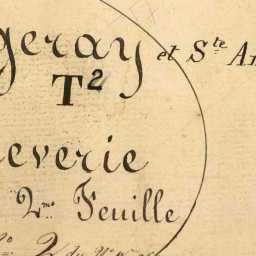 geray et Ste An
T2
everie
2me Feuille
2 du